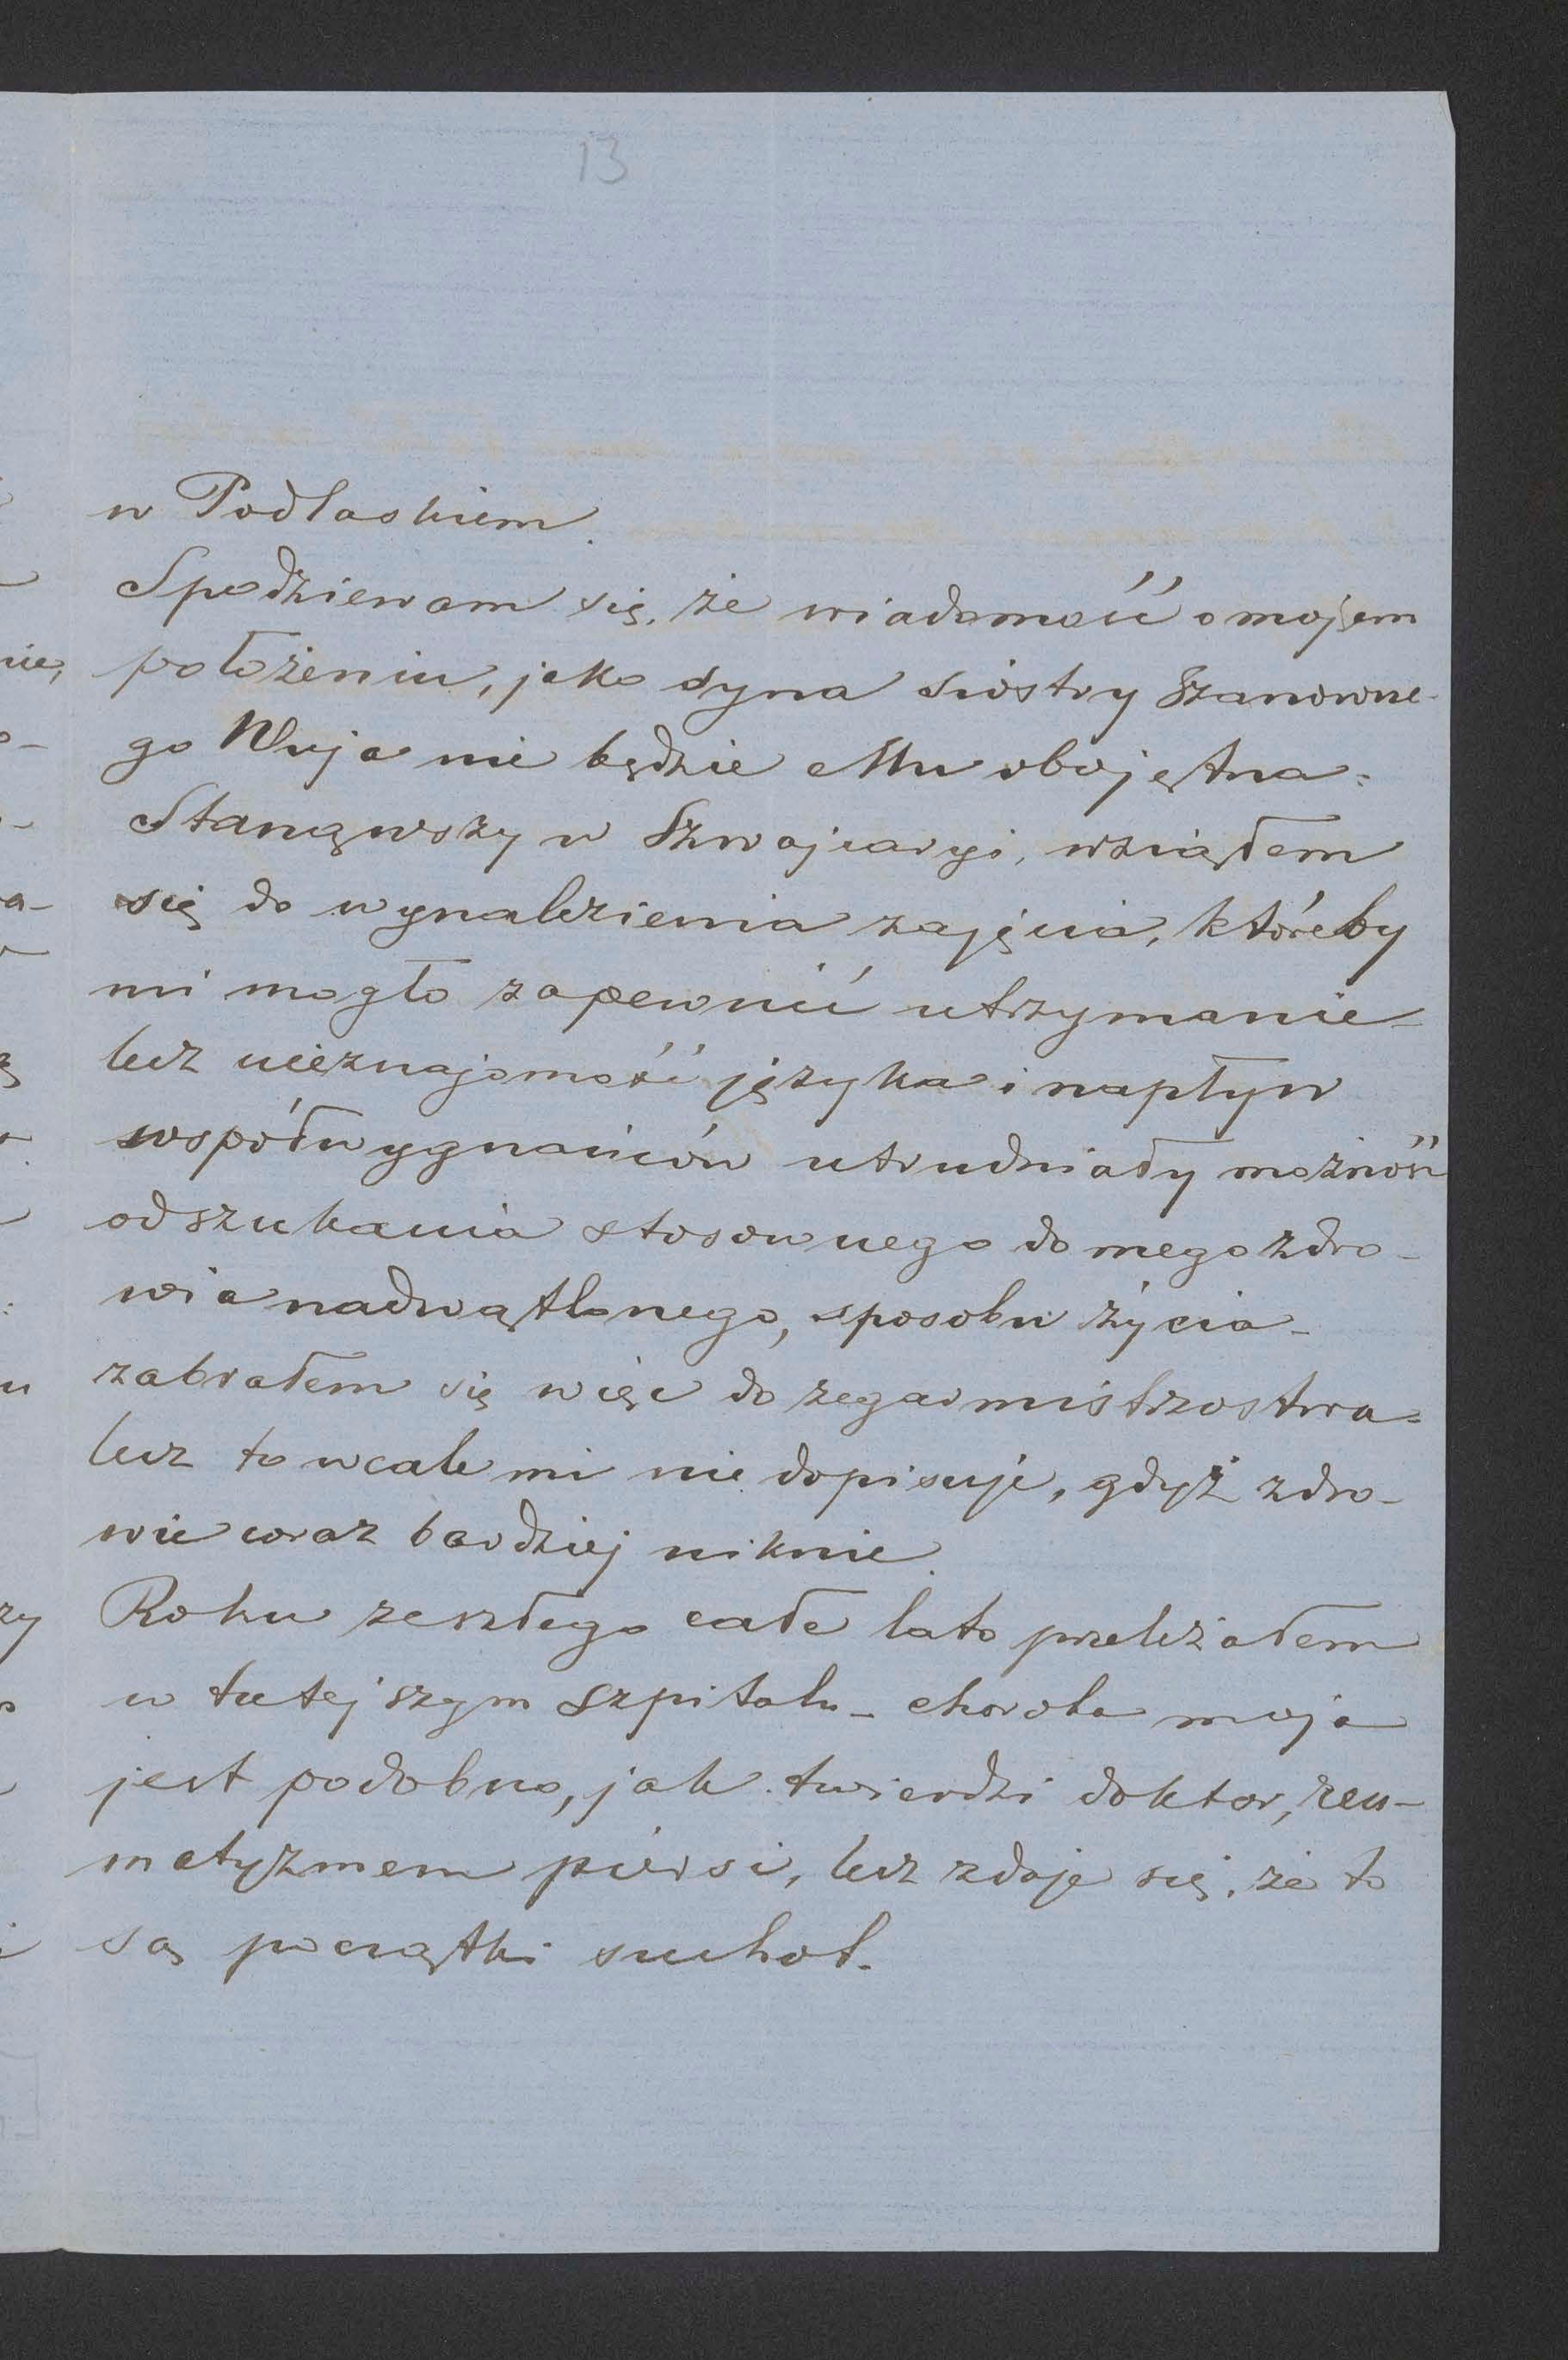 13
w Podlaskiem.
Spodziewam się, że wiadomość o mojem
położeniu, jako syna siostry Szanowne-
go Wuja nie będzie Mu obojętna.
Stanąwszy w Szwajcaryi, wziąłem
się do wynalezienia zajęcia, któreby
mi mogło zapewnić utrzymanie-
lecz nieznajomość języka i napływ
współwygnańców utrudniały możność
odszukania stosownego do mego zdro-
wia nadwątlonego, sposobu życia-
zabrałem się więc do zegarmistrzostwa-
lecz to wcale mi nie dopisuje, gdyż zdro-
wie coraz bardziej niknie.
Roku zeszłego całe lato przeleżałem
w tutejszym szpitalu- choroba moja
jest podobno, jak twierdzi doktor, reu-
matyzmem piersi, lecz zdaje się, że to
są początki suchot.